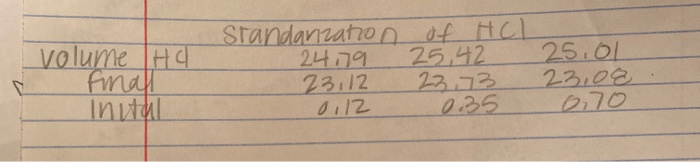 Standarization of HCl
volume HCl 24.79 25.42 25.01
final 23.12 23.73 23.08
Inital 0.12 0.35 0.70